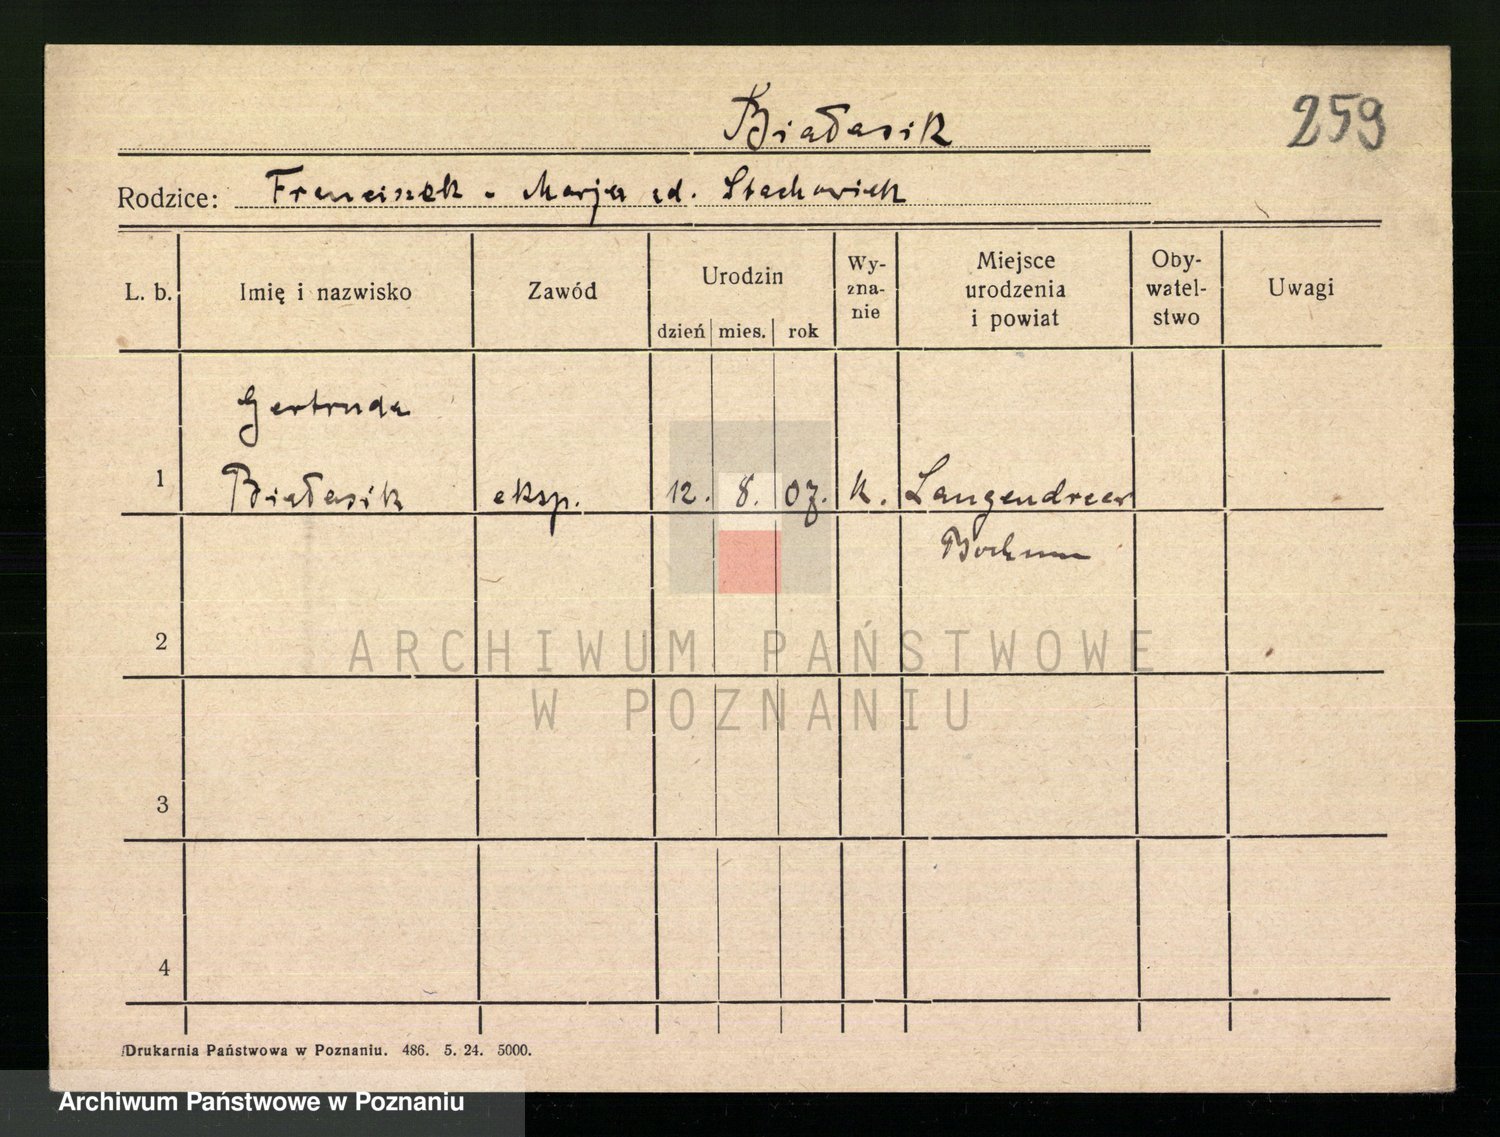 Białasik
259
Rodzice: Franciszek - Marja zd. Stachowiak
L. b.
Imię i nazwisko
Zawód
Urodzin
dzień mies. rok
Wy-
zna-
nie
Miejsce
urodzenia
i powiat
Oby-
watel-
stwo
Uwagi
Gertruda
1 Białasik eksp. 12. 8. 07. k. Langendreer
Bochum
2
ARCHIWUM PAŃSTWOWE
W POZNANIU
3
4
Drukarnia Państwowa w Poznaniu. 486. 5. 24. 5000.
Archiwum Państwowe w Poznaniu